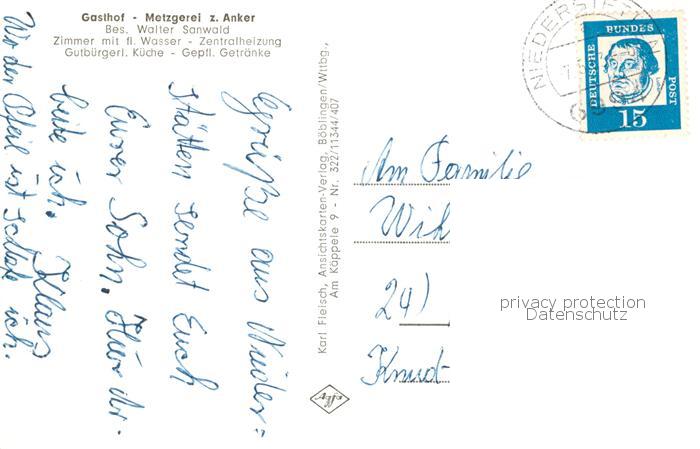 Gasthof - Metzgerei z. Anker
Bes. Walter Sanwald
Zimmer mit fl. Wasser - Zentralheizung
Gutbürgerl. Küche - Gepfl. Getränke
Grüße aus Nieder=
stätten sendet Euch
Euer Sohn. Hier
beite ich. Klaus
Wo der Pfeil ist schlafe ich.
Karl Fleisch, Ansichtskarten-Verlag, Böblingen/Wttbg.,
Am Käppele 9 - Nr. 322/11344/407
NIEDERSTETTEN
DEUTSCHE BUNDES POST
15
An Familie
Wilh
24)
privacy protection
Datenschutz